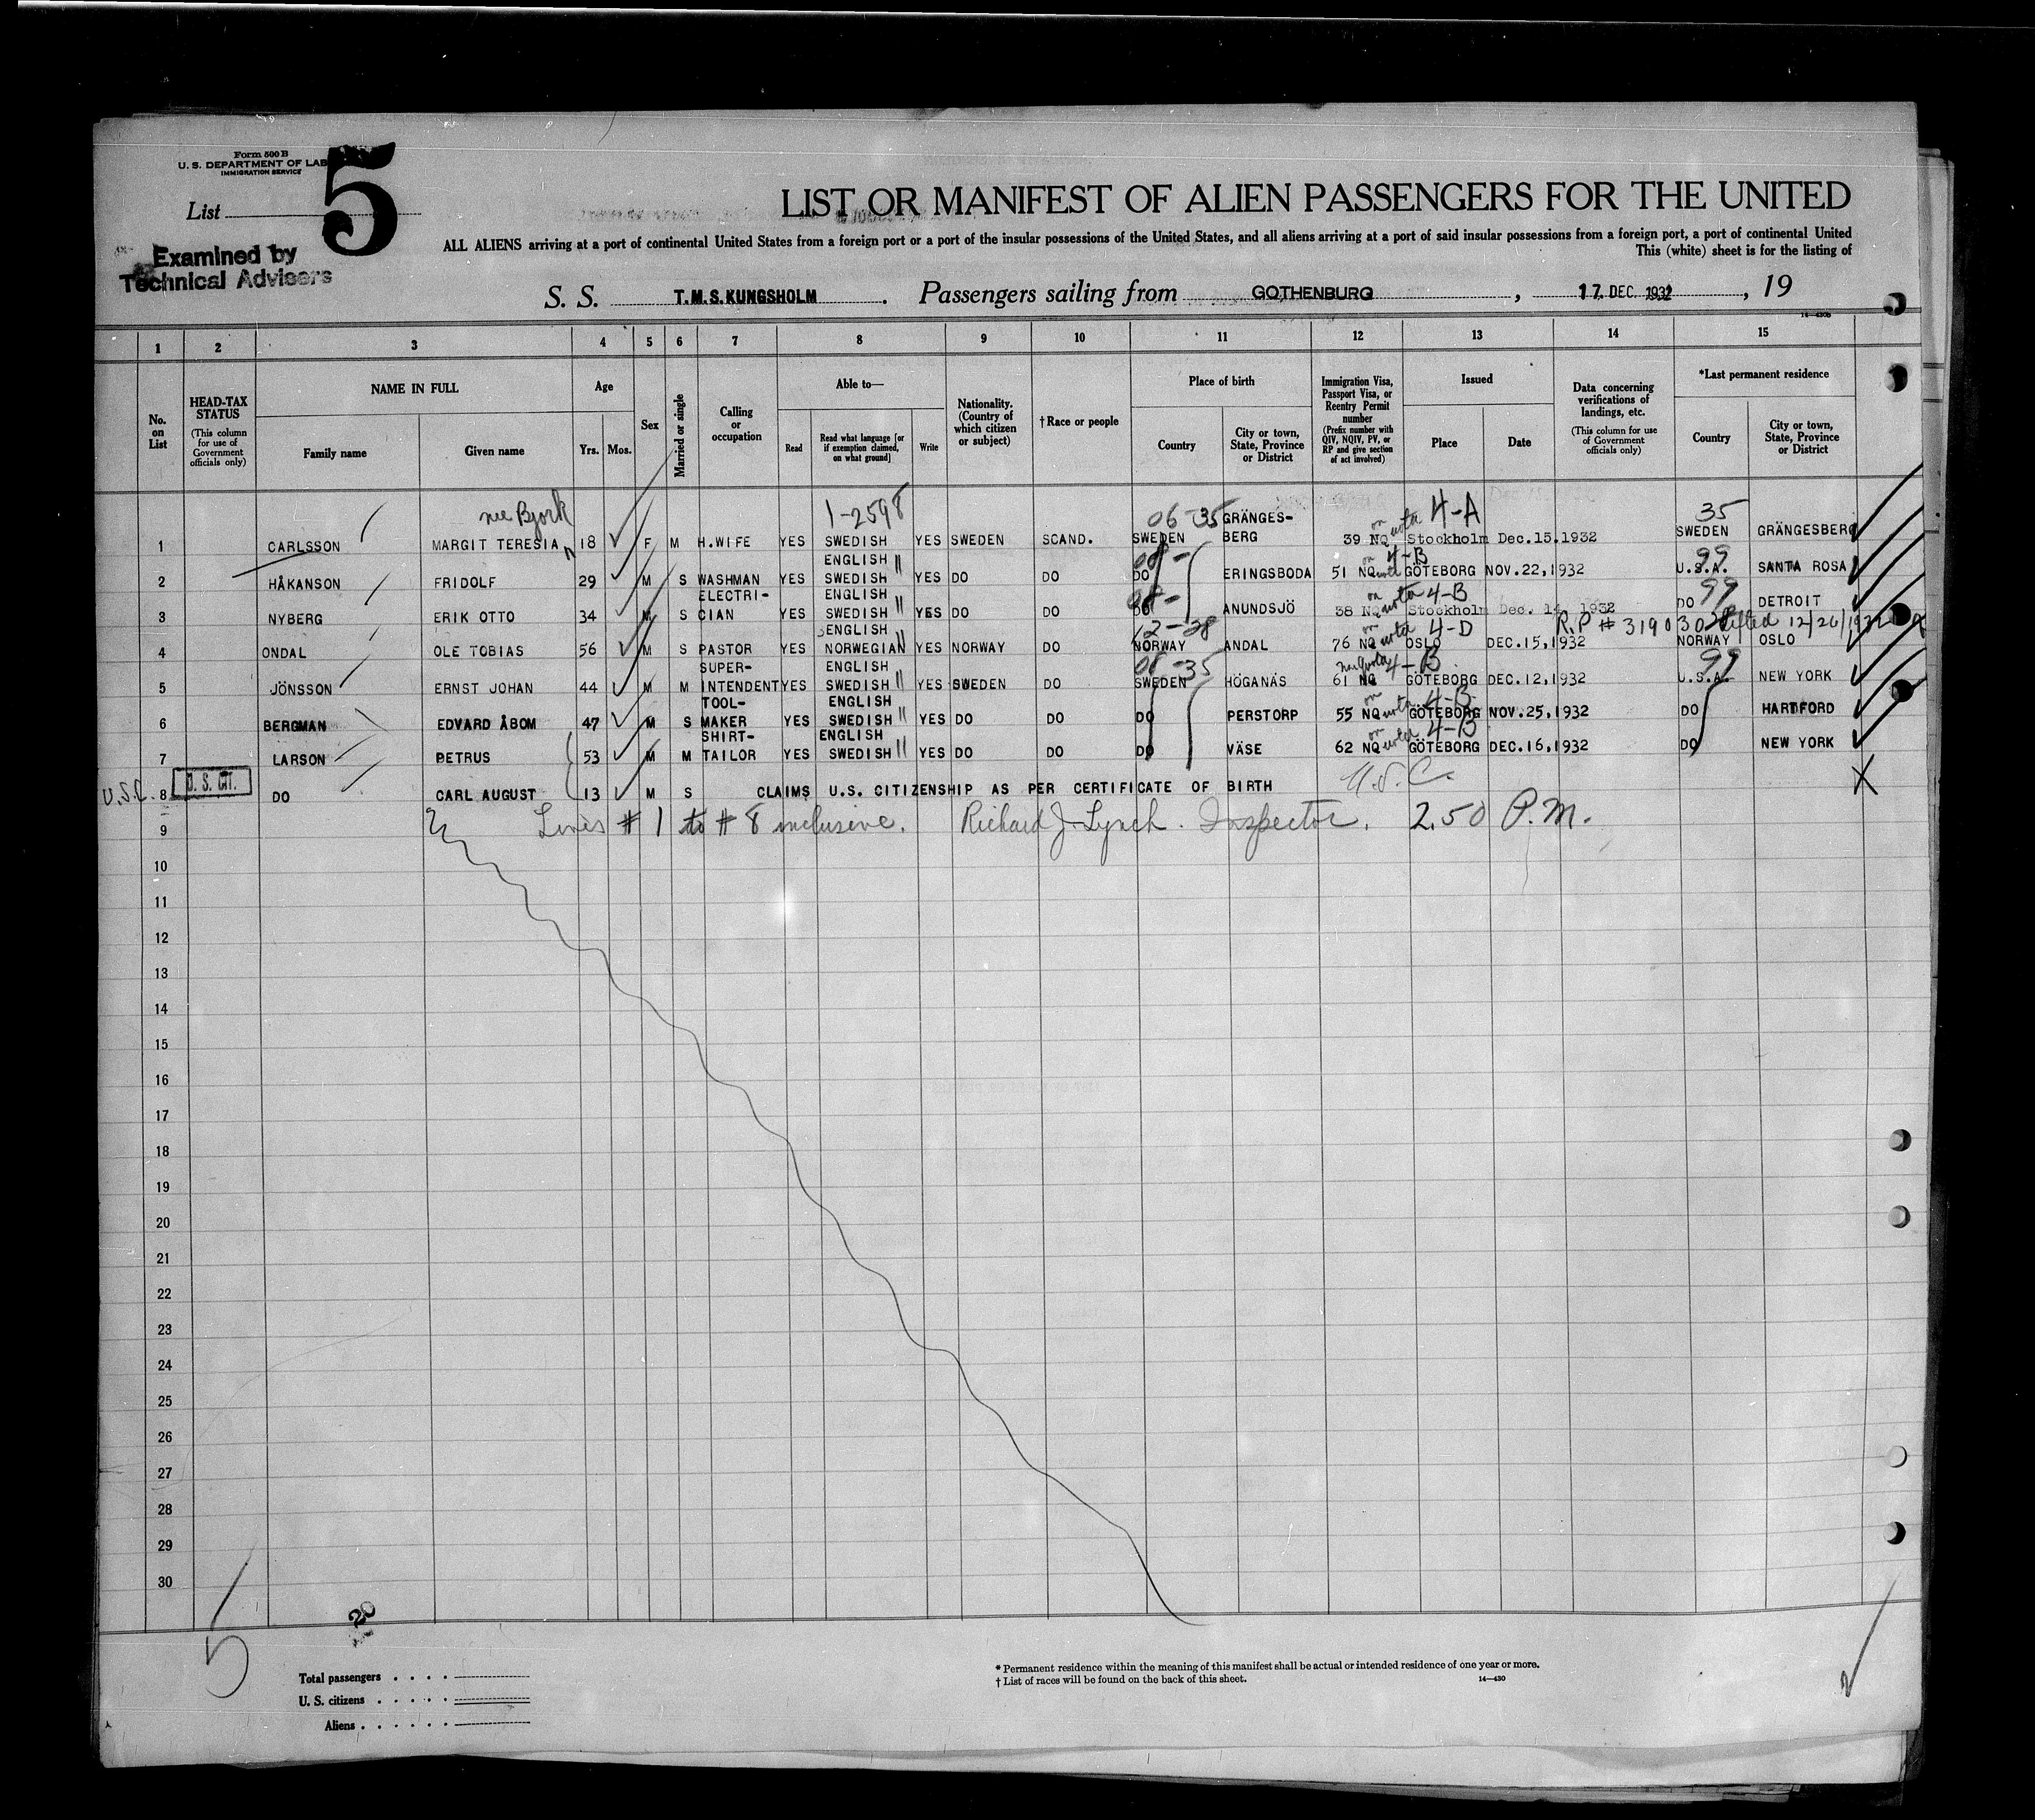 Form 500 B
U. S. DEPARTMENT OF LAB
IMMIGRATION SERVICE
List
5
Examined by
Technical Advisers
LIST OR MANIFEST OF ALIEN PASSENGERS FOR THE UNITED
ALL ALIENS arriving at a port of continental United States from a foreign port or a port of the insular possessions of the United States, and all aliens arriving at a port of said insular possessions from a foreign port, a port of continental United
This (white) sheet is for the listing of
S. S. T.M.S.KUNGSHOLM . Passengers sailing from GOTHENBURG , 17. DEC. 1932 , 19
1 2 3 4 5 6 7 8 9 10 11 12 13 14 15
No. on List
HEAD-TAX STATUS (This column for use of Government officials only)
NAME IN FULL
Family name
Given name
Age
Yrs. Mos.
Sex
Married or single
Calling or occupation
Able to—
Read
Read what language [or if exemption claimed, on what ground]
Write
Nationality. (Country of which citizen or subject)
† Race or people
Place of birth
Country
City or town, State, Province or District
Immigration Visa, Passport Visa, or Reentry Permit number (Prefix number with QIV, NQIV, PV, or RP and give section of act involved)
Issued
Place
Date
Data concerning verifications of landings, etc. (This column for use of Government officials only)
*Last permanent residence
Country
City or town, State, Province or District
nee Bjork 1-2598 06-35 GRÄNGES- 4-A 35
1 CARLSSON MARGIT TERESIA 18 F M H.WIFE YES SWEDISH YES SWEDEN SCAND. SWEDEN BERG 39 NQ Stockholm Dec.15.1932 SWEDEN GRÄNGESBERG
ENGLISH 4-B 99
2 HÅKANSON FRIDOLF 29 M S WASHMAN YES SWEDISH YES DO DO DO ERINGSBODA 51 NQ GÖTEBORG NOV.22,1932 U.S.A. SANTA ROSA
ELECTRI- ENGLISH 4-B 99
3 NYBERG ERIK OTTO 34 M S CIAN YES SWEDISH YES DO DO DO ANUNDSJÖ 38 NQ Stockholm Dec. 14, 1932 DO DETROIT
ENGLISH 12-28 4-D R.P # 319030 lifted 12/26/1932
4 ONDAL OLE TOBIAS 56 M S PASTOR YES NORWEGIAN YES NORWAY DO NORWAY ANDAL 76 NQ OSLO DEC.15,1932 NORWAY OSLO
SUPER- ENGLISH 4-B 99
5 JÖNSSON ERNST JOHAN 44 M M INTENDENT YES SWEDISH YES SWEDEN DO SWEDEN HÖGANÄS 61 NQ GÖTEBORG DEC.12,1932 U.S.A. NEW YORK
TOOL- ENGLISH 4-B
6 BERGMAN EDVARD ÅBOM 47 M S MAKER YES SWEDISH YES DO DO DO PERSTORP 55 NQ GÖTEBORG NOV.25,1932 DO HARTFORD
SHIRT- ENGLISH 4-B
7 LARSON PETRUS 53 M M TAILOR YES SWEDISH YES DO DO DO VÄSE 62 NQ GÖTEBORG DEC.16,1932 DO NEW YORK
U.S.C. 8 U.S. CIT. DO CARL AUGUST 13 M S CLAIMS U.S. CITIZENSHIP AS PER CERTIFICATE OF BIRTH U.S.C. X
9 Lines # 1 to # 8 inclusive. Richard J. Lynch. Inspector. 2.50 P.M.
10
11
12
13
14
15
16
17
18
19
20
21
22
23
24
25
26
27
28
29
30
5
20
Total passengers
U. S. citizens
Aliens
* Permanent residence within the meaning of this manifest shall be actual or intended residence of one year or more.
† List of races will be found on the back of this sheet.
14—430